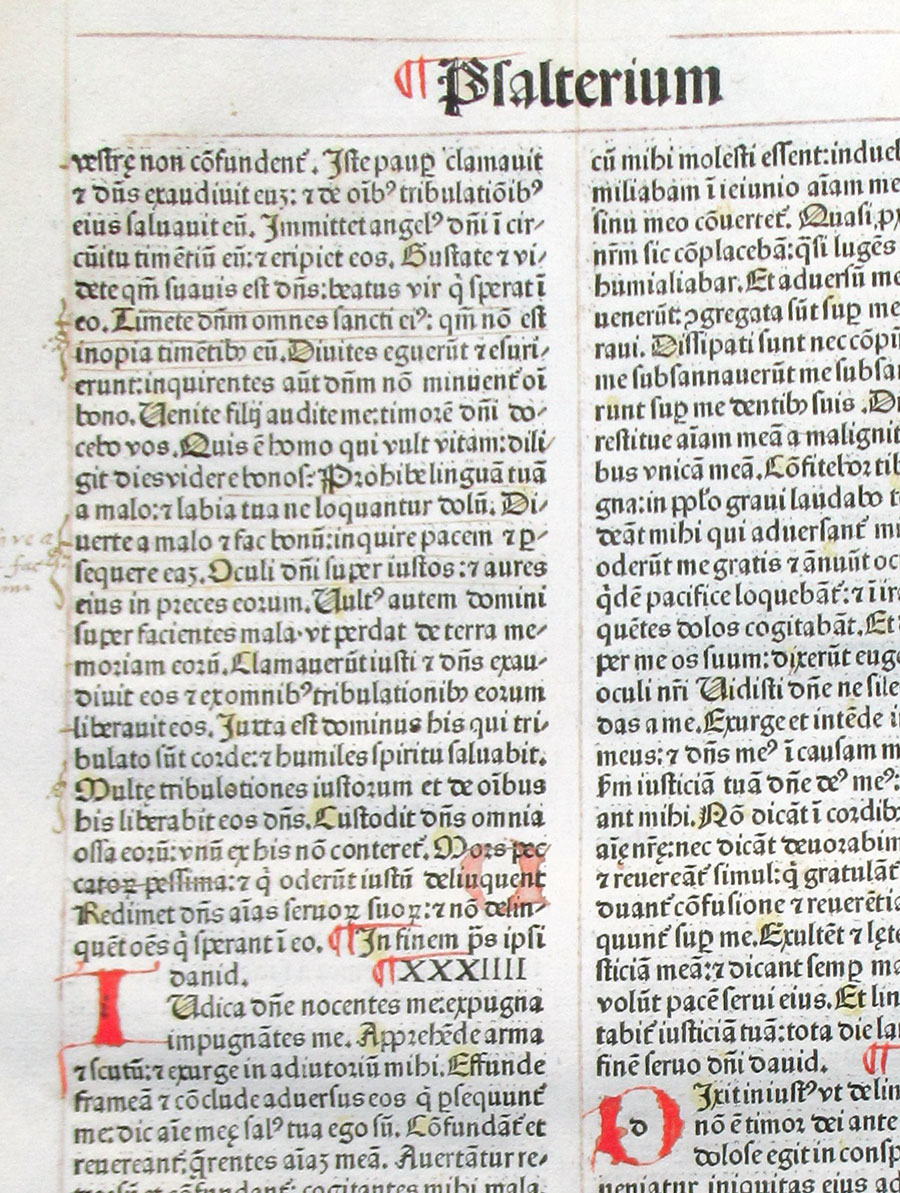 ¶ Psalterium
vestrę non cõfundent᷒. Iste paup̱ clamauit
⁊ dñs exaudiuit euʒ: ⁊ de oĩbꝰ tribulatiõibꝰ
eius saluauit eũ. Immittet angelꝰ dñi ĩ cir-
cũitu timẽtiũ eũ: ⁊ eripiet eos. Gustate ⁊ vi-
dete qm̃ suauis est dñs: beatus vir q̇ sperat ĩ
eo. Timete dñm omnes sancti eiꝰ: qm̃ nõ est
inopia timẽtibꝫ eũ. Diuites eguerũt ⁊ esuri-
erunt: inquirentes aũt dñm nõ minuent᷒ oĩ
bono. Uenite filij audite me: timorẽ dñi do-
cebo vos. Quis ẽ homo qui vult vitam: dili
git dies videre bonos: Prohibe linguã tuã
a malo: ⁊ labia tua ne loquantur dolũ. Di-
uerte a malo ⁊ fac bonũ: inquire pacem ⁊ p̱-
sequere eaʒ. Oculi dñi super iustos: ⁊ aures
eius in preces eorum. Uultꝰ autem domini
super facientes mala· vt perdat de terra me-
moriam eorũ. Clamauerũt iusti ⁊ dñs exau-
diuit eos ⁊ ex omnibꝰ tribulationibꝫ eorum
liberauit eos. Iuxta est dominus his qui tri-
bulato sũt corde: ⁊ humiles spiritu saluabit.
Multę tribulotiones iustorum et de oĩbus
his liberabit eos dñs. Custodit dñs omnia
ossa eorũ: vnũ ex his nõ conteret᷒. Mors pec
catoꝝ pessima: ⁊ q̇ oderũt iustũ delinquent
Redimet dñs aĩas seruoꝝ suoꝝ: ⁊ nõ delin-
quẽt oẽs q̇ sperant ĩ eo. ¶ In finem p̃s ipsi
dauid. ¶ XXXIIII
I Udica dñe nocentes me: expugna
impugnãtes me. Apprehẽde arma
⁊ scutũ: ⁊ exurge in adiutoriũ mihi. Effunde
frameã ⁊ cõclude aduersus eos q̇ p̱sequunt᷒
me: dic aĩe meę salꝰ tua ego sũ. Cõfundãt᷒ et
reuereant᷒: q̃rentes aĩaʒ meã. Auertãtur re-
cogitantes mihi mala.
cũ mihi molesti essent: induet
miliabam ĩ ieiunio aĩam me
sinu meo cõuertet᷒. Quasi px
nr̃m sic cõplacebã: q̃si lugẽs
humialiabar. Et aduersũ me
uenerũt: ꝯgregata sũt sup̱ me
raui. Dissipati sunt nec cõpũ
me subsannauerũt me subsan
runt sup̱ me dentibꝫ suis. Dñ
restitue aĩam meã a malignit
bus vnicã meã. Cõfitebor tib
gna: in ppl̃o graui laudabo t
deãt mihi qui aduersant᷒ mi
oderũt me gratis ⁊ ãnuũt oc
q̇dẽ pacifice loquebãt᷒: ⁊ ĩ ir
quẽtes dolos cogitabãt. Et
per me os suum: dixerũt euge
oculi nr̃i Uidisti dñe ne sile
das a me. Exurge et intẽde i
meus: ⁊ dñs meꝰ ĩ causam m
ẜm iusticiã tuã dñe deꝰ meꝰ:
ant mihi. Nõ dicãt ĩ cordibꝫ
aĩę nr̃ę: nec dicãt deuorabim
⁊ reuereãt᷒ simul: q̇ gratulãt᷒
duant᷒ cõfusione ⁊ reuerẽtia
quunt᷒ sup̱ me. Exultẽt ⁊ lęte
sticiã meã: ⁊ dicant semp̱ ma
volũt pacẽ serui eius. Et lin
tabit᷒ iusticiã tuã: tota die la
finẽ seruo dñi dauid. ¶
D Ixit iniustꝰ vt delin
nõ ẽ timor dei ante
dolose egit in consp
ueniatur iniquitas eius ad